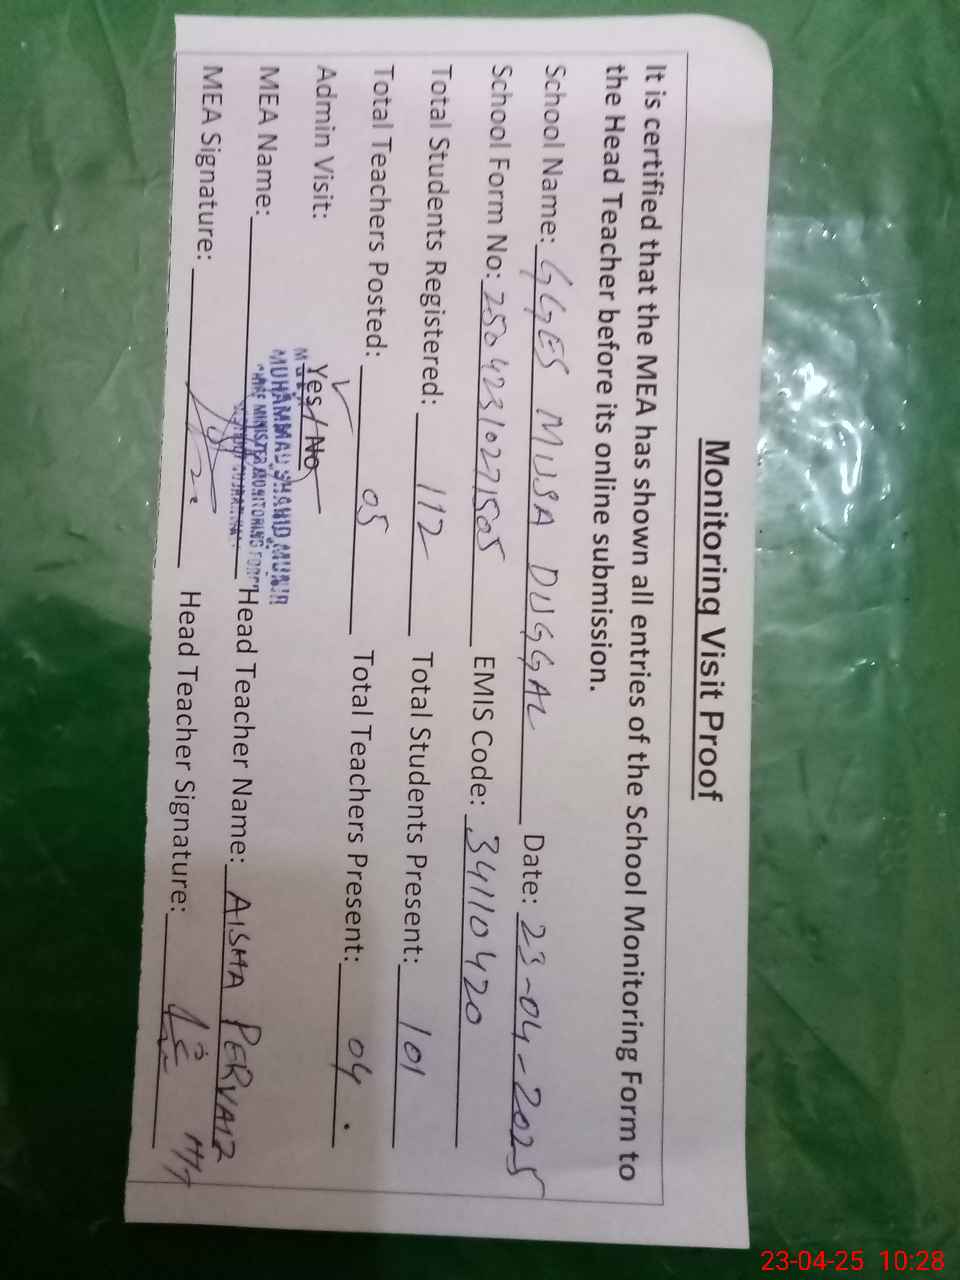 Monitoring Visit Proof
It is certified that the MEA has shown all entries of the School Monitoring Form to
the Head Teacher before its online submission.
School Name: GGES MUSA DUGGAL Date: 23-04-2025
School Form No: 25042310271505 EMIS Code: 34110420
Total Students Registered: 112 Total Students Present: 101
Total Teachers Posted: 05 Total Teachers Present: 04
Admin Visit: Yes / No
MUHAMMAD SHAHID MUNIR
MINISTER MONITORING FORCE
MEA Name: Head Teacher Name: AISHA PERVAIZ
MEA Signature: Head Teacher Signature:
23-04-25 10:28